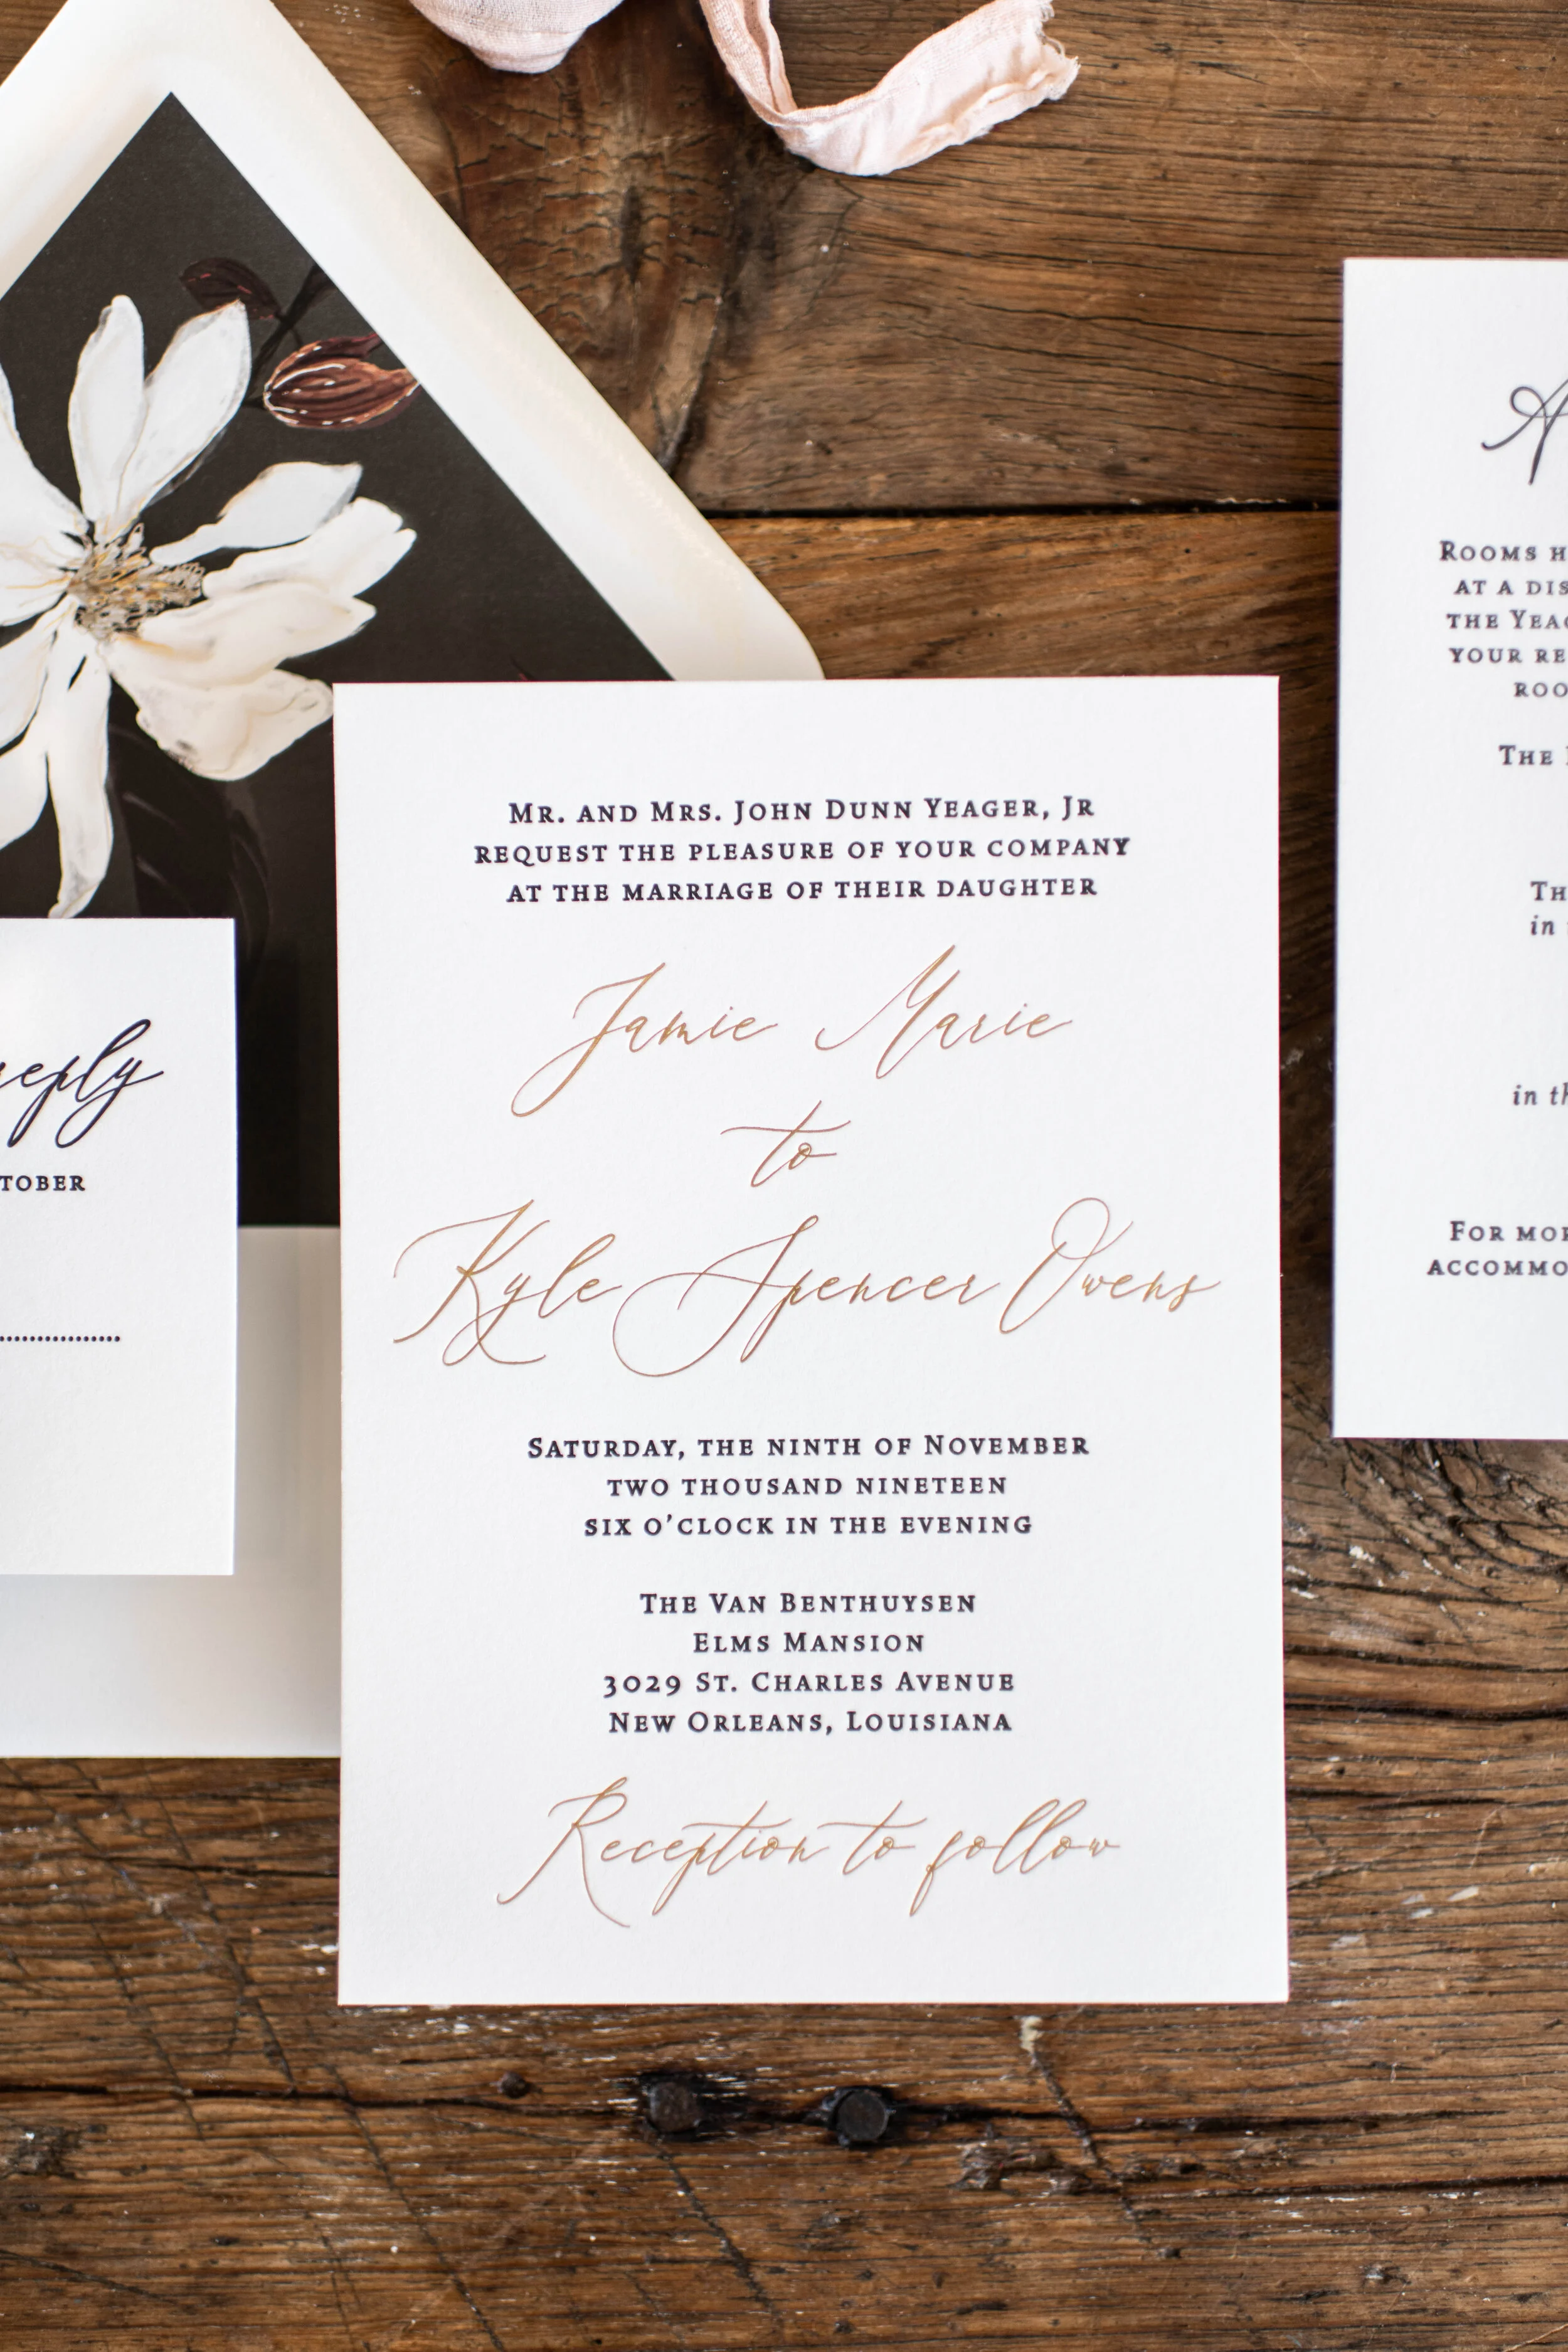 Mr. and Mrs. John Dunn Yeager, Jr
request the pleasure of your company
at the marriage of their daughter
Jamie Marie
to
Kyle Spencer Owens
Saturday, the ninth of November
two thousand nineteen
six o'clock in the evening
The Van Benthuysen
Elms Mansion
3029 St. Charles Avenue
New Orleans, Louisiana
Reception to follow
reply
Rooms
at a
the
your
The
in
in
For